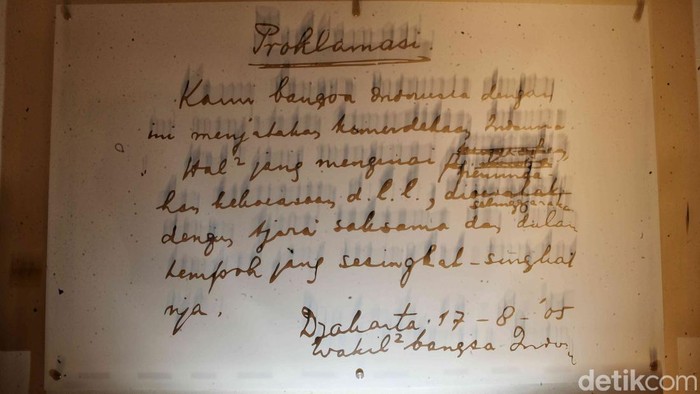 Proklamasi.
Kami bangsa Indonesia dengan
ini menjatakan kemerdekaan Indonesia.
Hal² jang mengenai
peminda-
han kekoeasaan d.l.l., diselenggarakan
dengan tjara saksama dan dalam
tempoh jang sesingkat-singkat
nja.
Djakarta, 17-8-'05
Wakil² bangsa Indon
detikcom